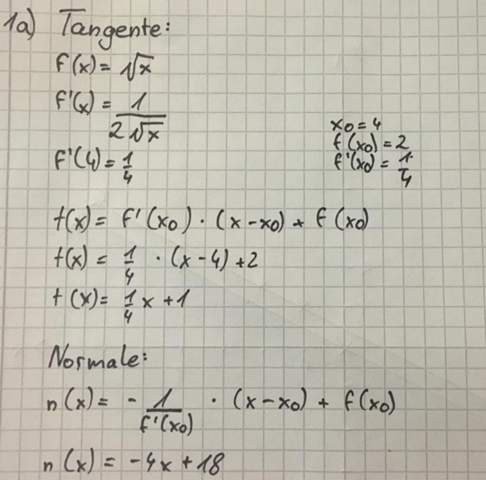 1a) Tangente:
f(x) = √x
f'(x) = 1/(2√x)
f'(4) = 1/4
x0 = 4
f(x0) = 2
f'(x0) = 1/4
t(x) = f'(x0) · (x-x0) + f(x0)
t(x) = 1/4 · (x-4) +2
t(x) = 1/4 x +1
Normale:
n(x) = - 1/f'(x0) · (x-x0) + f(x0)
n(x) = -4x +18